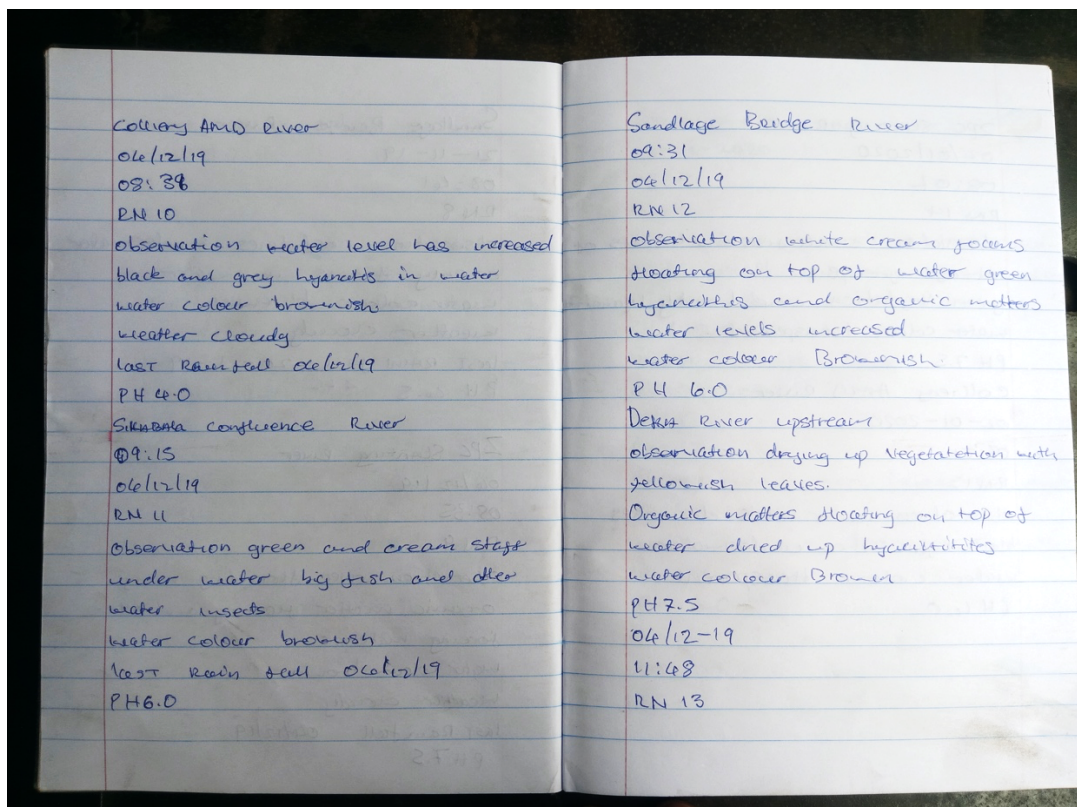 Colliery AMD River
04/12/19
08:38
RN 10
observation water level has increased
black and grey hyanctis in water
water colour brownish
weather cloudy
last Rain fall 04/12/19
PH 4.0
SIKABALA confluence River
09:15
04/12/19
RN 11
observation green and cream staff
under water big fish and other
water insects
water colour browish
last Rain fall 04/12/19
PH6.0
Sandlage Bridge River
09:31
04/12/19
RN 12
observation white cream foams
floating on top of water green
hyancithis and organic matters
water levels increased
water colour Brownish.
PH 6.0
DEKA River upstream
observation drying up vegetatetion with
yellowish leaves.
Organic matters floating on top of
water dried up
water colour Brown
PH7.5
04/12-19
11:48
RN 13